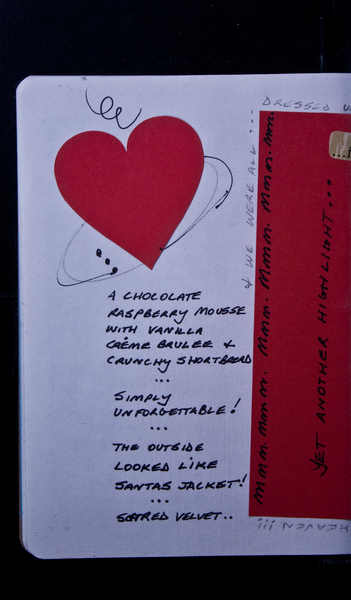 A CHOCOLATE
RASPBERRY MOUSSE
WITH VANILLA
CRÈME BRULEE &
CRUNCHY SHORTBREAD
...
SIMPLY
UNFORGETTABLE!
...
THE OUTSIDE
LOOKED LIKE
SANTAS JACKET!
...
RED VELVET..
DRESSED
& WE WERE ALL...
mmm mmm. mmm. mmm. mmm. mm.
YET ANOTHER HIGHLIGHT...
HEAVEN!!!